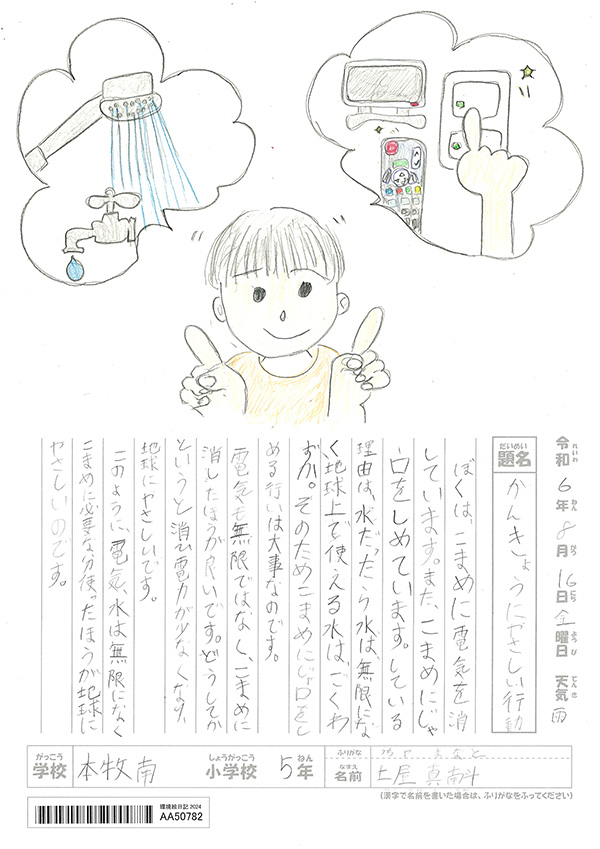 令和 6年 8月 16日 金曜日 天気 雨
れいわ ねん がつ にち ようび てんき
だいめい
題名 かんきょうにやさしい行動
ぼくは、こまめに電気を消
しています。また、こまめにじゃ
口をしめています。している
理由は、水だったら水は、無限にな
く地球上で使える水は、ごくわ
ずか。そのためこまめにじゃ口をし
める行いは大事なのです。
電気も無限ではなく、こまめに
消したほうが良いです。どうしてか
というと消ひ電力が少なくなり、
地球にやさしいです。
このように、電気、水は無限になく
こまめに必要な分使ったほうが地球に
やさしいのです。
がっこう
学校 本牧南
しょうがっこう
小学校 5年
ねん
ふりがな まなと
なまえ
名前 土屋 真南斗
(漢字で名前を書いた場合は、ふりがなをふってください)
環境絵日記 2024
AA50782